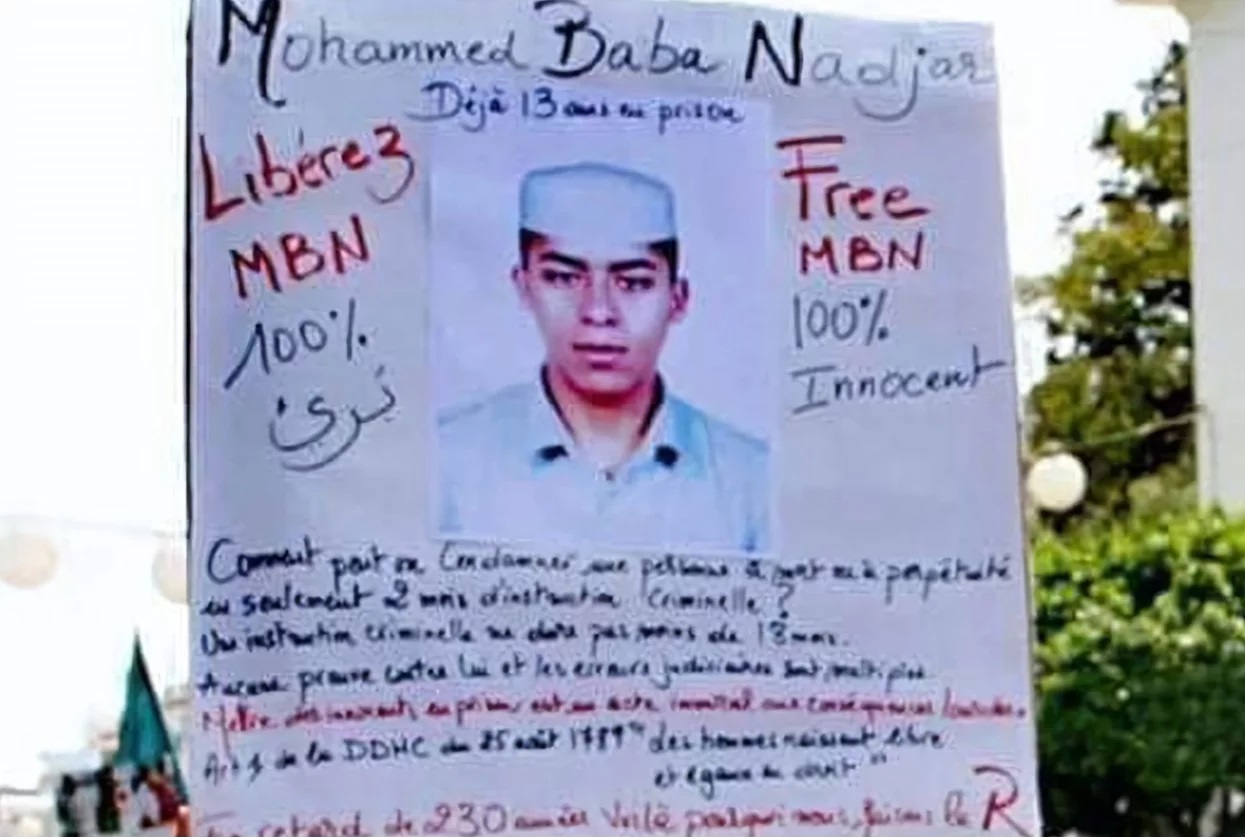 Mohammed Baba Nadjar
Déjà 13 ans en prison
Libérez
MBN
100%
بريء
Free
MBN
100%
Innocent
Comment peut on Condamner une personne à mort ou à perpétuité
en seulement 2 mois d'instruction Criminelle ?
Une instruction criminelle ne dure pas moins de 18 mois.
Aucune preuve contre lui et les erreurs judiciaires sont multiples
Mettre des innocents en prison est un acte immoral aux conséquences lourdes.
Art 1 de la DDHC du 25 août 1789 "des hommes naissent libre
et égaux en droit"
retard de 230 années Voilà pourquoi nous faisons la R